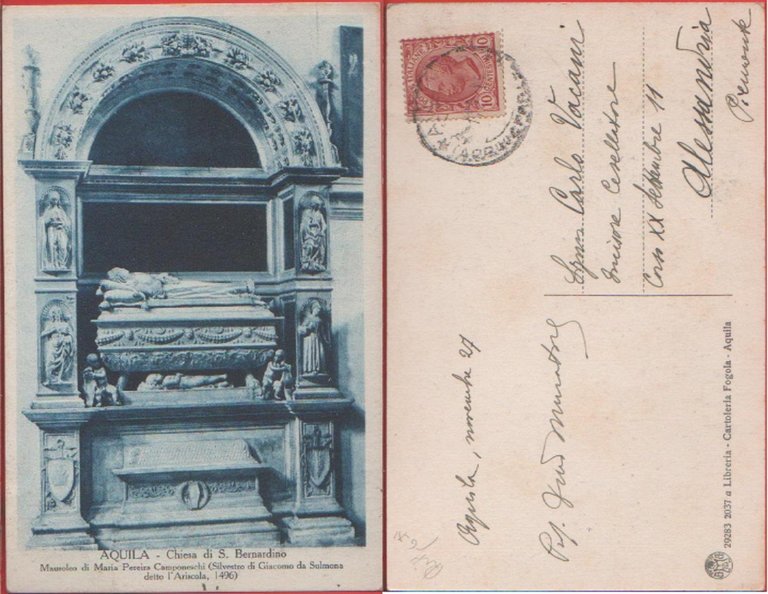 AQUILA - Chiesa di S. Bernardino
Mausoleo di Maria Pereira Camponeschi (Silvestro di Giacomo da Sulmona
detto l'Ariscola, 1496)
10 10
Signor Carlo Vacani
Incisore Cesellatore
Corso XX Settembre 11
Alessandria
Piemonte
Aquila, novembre 27
Prof.
29283 2037 a Libreria - Cartoleria Fogola - Aquila